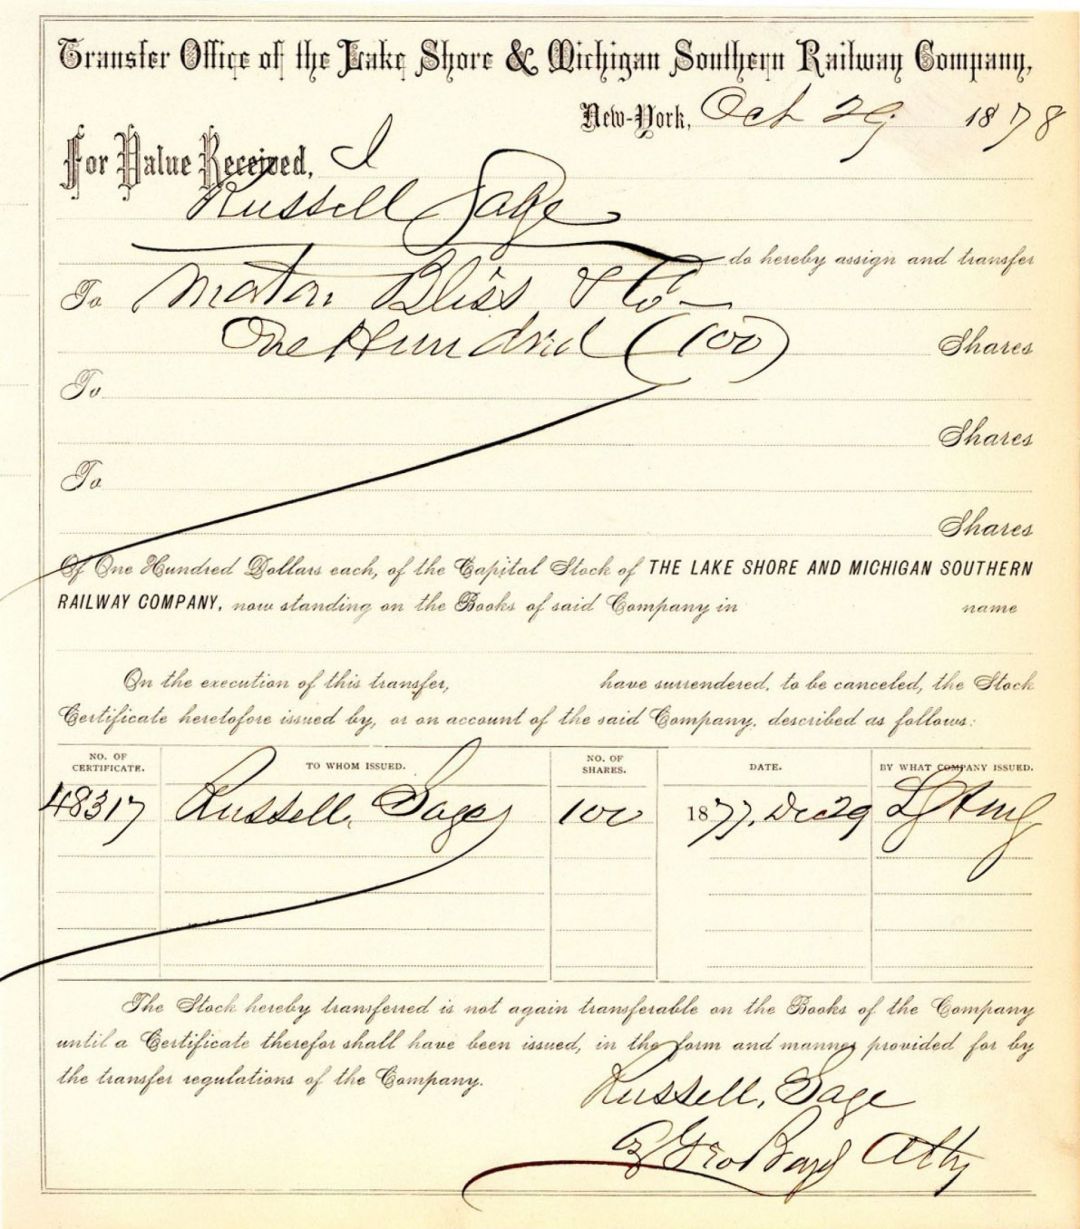 Transfer Office of the Lake Shore & Michigan Southern Railway Company,
New-York, Oct 29 1878
For Value Received, I
Russell Sage
do hereby assign and transfer
To Morton Bliss & Co
One Hundred (100) Shares
To
Shares
To
Shares
Of One Hundred Dollars each, of the Capital Stock of THE LAKE SHORE AND MICHIGAN SOUTHERN
RAILWAY COMPANY, now standing on the Books of said Company in name
On the execution of this transfer, have surrendered, to be canceled, the Stock
Certificate heretofore issued by, or on account of the said Company, described as follows:
NO. OF CERTIFICATE. TO WHOM ISSUED. NO. OF SHARES. DATE. BY WHAT COMPANY ISSUED.
48317 Russell Sage 100 1877. Dec 29
The Stock hereby transferred is not again transferable on the Books of the Company
until a Certificate therefor shall have been issued, in the form and manner provided for by
the transfer regulations of the Company.
Russell Sage
Geo Boyd Atty